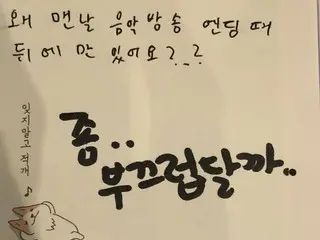 왜 맨날 음악방송 엔딩 때
뒤에만 있어요?_?
좀..
부끄럽달까..
잊지말고 적개♪